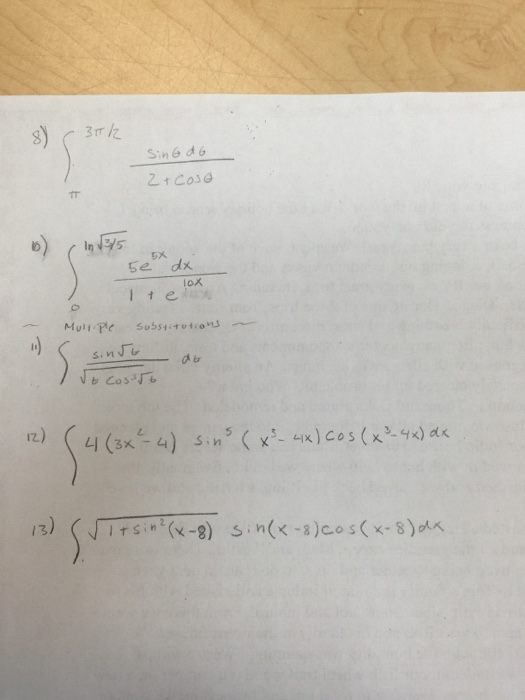 8) ∫_π^{3π/2} sinθ dθ / 2 + cosθ
10) ∫_0^{ln√3/5} 5e^{5x} dx / 1 + e^{10x}
~ Multiple Substitutions ~
11) ∫ sin√θ / √(θ cos³√θ) dθ
12) ∫ 4(3x²-4) sin⁵(x³-4x)cos(x³-4x)dx
13) ∫ √(1+sin²(x-8)) sin(x-8)cos(x-8)dx